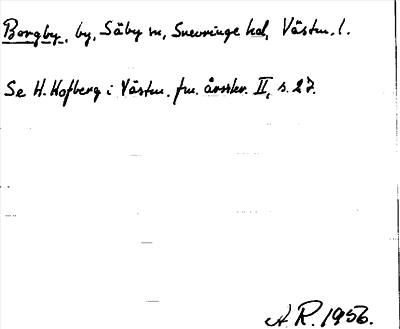 Borgby, by, Säby sn, Snevringe hd, Västm. l.
Se H. Hofberg i Västm. fm. årsskr. II, s. 27.
A. R. 1956.